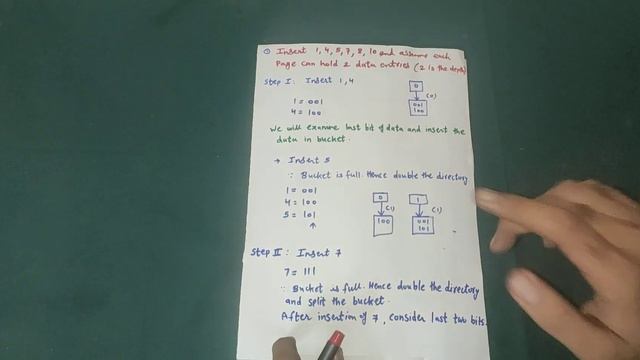 Insert 1, 4, 5, 7, 8, 10 and assume each
Page can hold 2 data entries (2 is the depth)
Step I: Insert 1,4
0
(0)
001
100
1 = 001
4 = 100
We will examine last bit of data and insert the
data in bucket.
→ Insert 5
∵ Bucket is full. Hence double the directory
1 = 001
4 = 100
5 = 101
↑
0
(1)
100
1
(1)
001
101
Step II: Insert 7
7 = 111
∵ Bucket is full. Hence double the directory
and split the bucket.
After insertion of 7, consider last two bits.